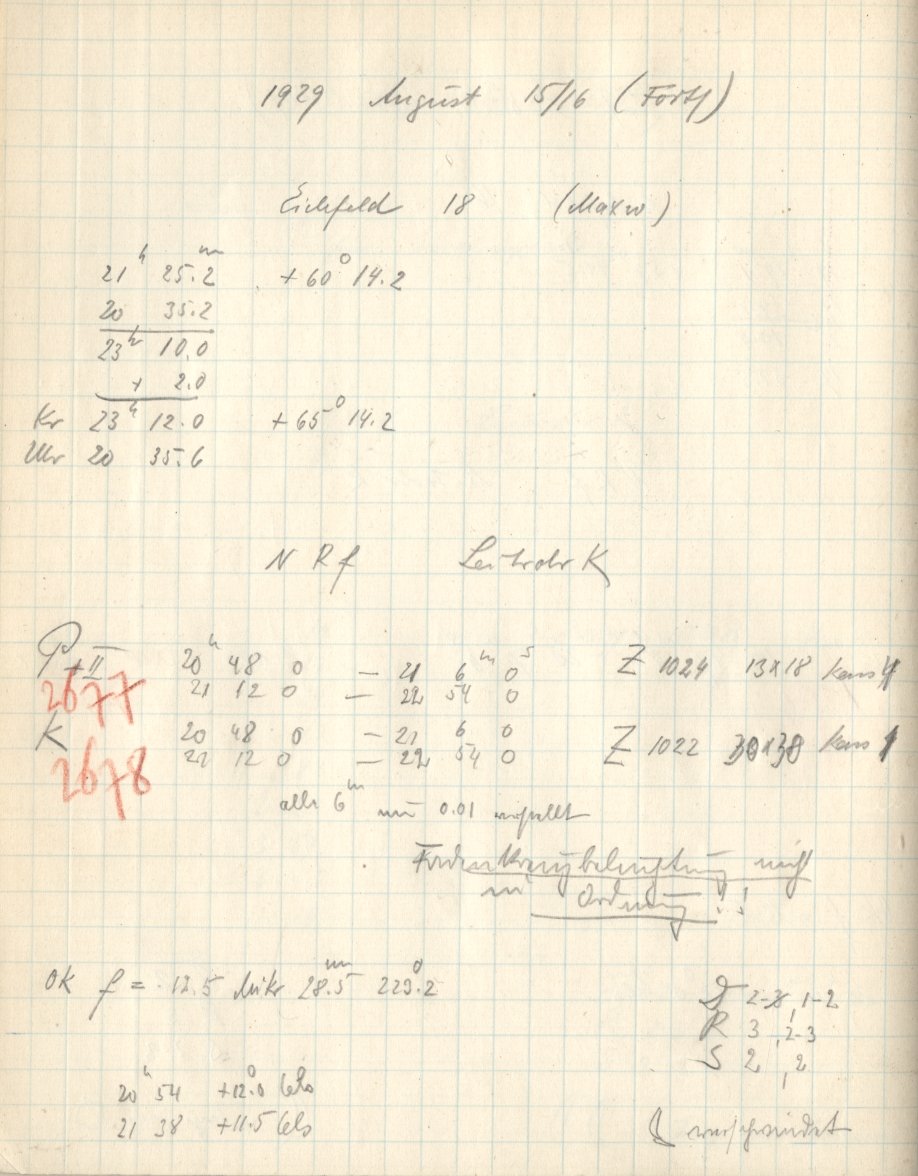 1929 August 15/16 (Forts)
Eichfeld 18 (Maxw)
21h 25.2m +60° 14.2
20 35.2
23h 10.0
+ 2.0
Kr 23h 12.0 +65° 14.2
Uhr 20 35.6
N R f Leitrohr K
P+II 20h 48 0 — 21 6m 0s Z 1024 13x18 Kass 4
2677 21 12 0 — 22 54 0
K 20 48 0 — 21 6 0 Z 1022 30x38 Kass 1
2678 21 12 0 — 22 54 0
alle 6m um 0.01 verstellt
Fadenkreuzbeleuchtung nicht
in Ordnung!!
OK f = 12.5 Mikr 28.5mm 229°.2
D 2-3, 1-2
R 3, 2-3
S 2, 2
20h 54 +12°.0 Cels
21 38 +11.5 Cels
verschwindet